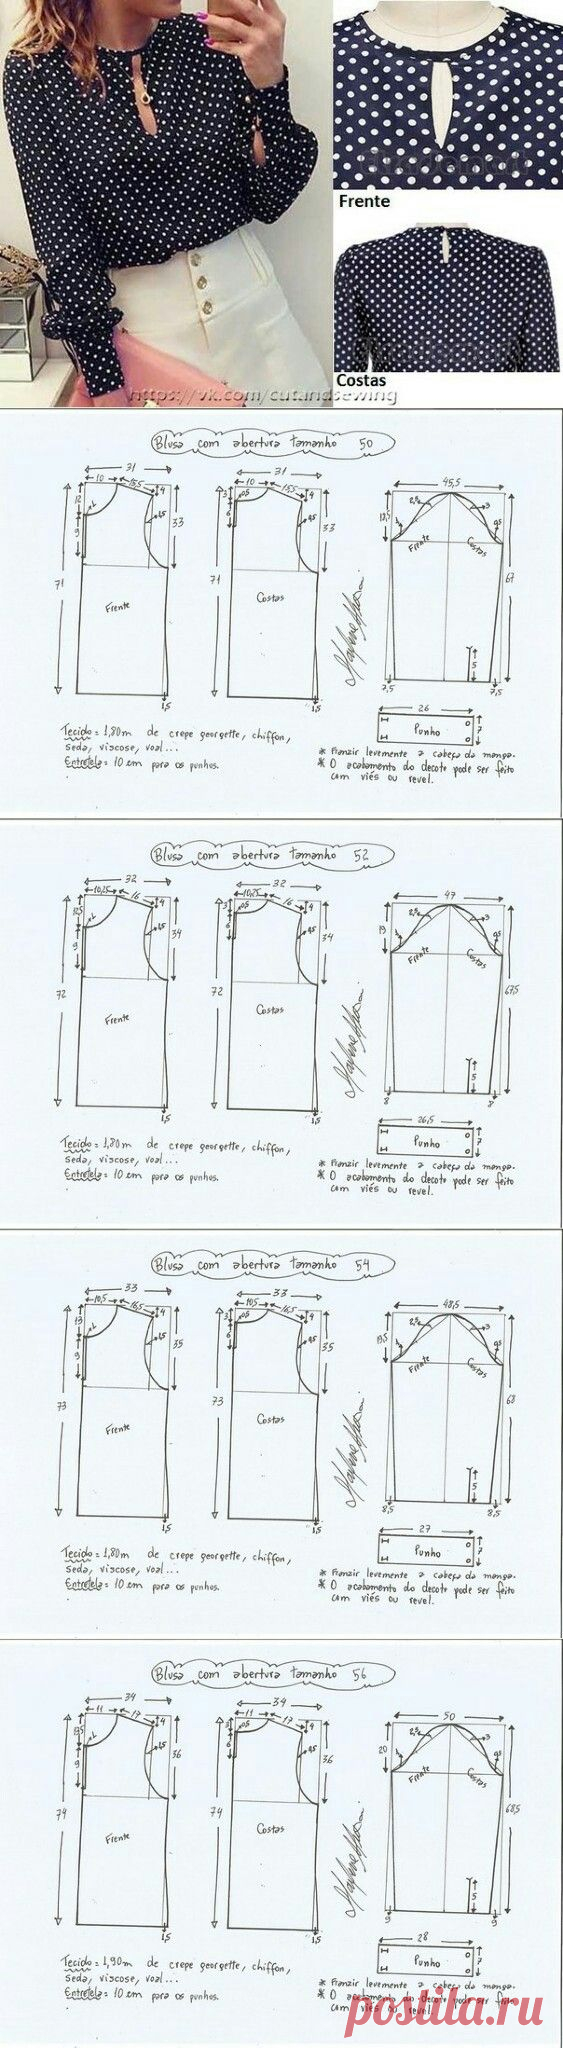 Frente
Costas
https://vk.com/cutandsewing
Blusa com abertura tamanho 50
31
10
15,5
4
12
2
9
3,5
33
71
Frente
1,5
31
10
15,5
4
3
0,5
6
3,5
33
71
Costas
1,5
45,5
2,5
3
0,5
Frente
Costas
67
5
7,5
7,5
26
Punho
7
Tecido = 1,80m de crepe georgette, chiffon,
seda, viscose, voal...
Entretela = 10 cm para os punhos.
* Franzir levemente a cabeça da manga.
* O acabamento do decote pode ser feito
com viés ou revel.
Blusa com abertura tamanho 52
32
10,25
16
4
12,5
2
9
34
72
Frente
1,5
32
10,25
16
4
3
0,5
6
34
72
Costas
1,5
47
2,5
3
19
0,5
Frente
Costas
67,5
5
8
8
26,5
Punho
7
Tecido = 1,80m de crepe georgette, chiffon,
seda, viscose, voal...
Entretela = 10 cm para os punhos.
* Franzir levemente a cabeça da manga.
* O acabamento do decote pode ser feito
com viés ou revel.
Blusa com abertura tamanho 54
33
10,5
16,5
4
13
2
9
35
73
Frente
1,5
33
10,5
16,5
4
3
0,5
6
35
73
Costas
1,5
48,5
2,5
3
19,5
0,5
Frente
Costas
68
5
8,5
8,5
27
Punho
7
Tecido = 1,80m de crepe georgette, chiffon,
seda, viscose, voal...
Entretela = 10 cm para os punhos.
* Franzir levemente a cabeça da manga.
* O acabamento do decote pode ser feito
com viés ou revel.
Blusa com abertura tamanho 56
34
11
17
4
13,5
2
9
36
74
Frente
1,5
34
11
17
4
3
0,5
6
36
74
Costas
1,5
50
2,5
3
20
0,5
Frente
Costas
68,5
5
9
9
28
Punho
7
Tecido = 1,90m de crepe georgette, chiffon,
seda, viscose, voal...
Entretela = 10 cm para os punhos.
* Franzir levemente a cabeça da manga.
* O acabamento do decote pode ser feito
com viés ou revel.
postila.ru